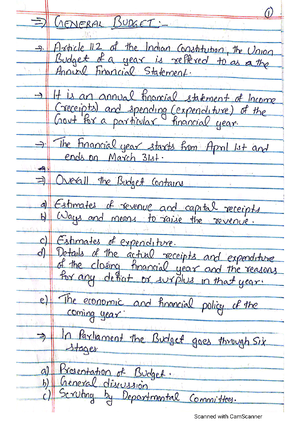 ①
⇒ GENERAL BUDGET:-
→ Article 112 of the Indian Constitution, the Union
Budget of a year is reffered to as the
Annual Financial Statement.
→ It is an annual financial statement of Income
(receipts) and spending (expenditure) of the
Govt for a particular financial year.
→ The financial year starts from April 1st and
ends on March 31st.
⇒ Overall the Budget contains
a) Estimates of revenue and capital receipts
b) Ways and means to raise the revenue.
c) Estimates of expenditure.
d) Details of the actual receipts and expenditure
of the closing financial year and the reasons
for any deficit or surplus in that year.
e) The economic and financial policy of the
coming year.
→ In Parliament the Budget goes through Six
stages
a) Presentation of Budget.
b) General discussion
c) Scrutiny by Departmental Committees.
Scanned with CamScanner